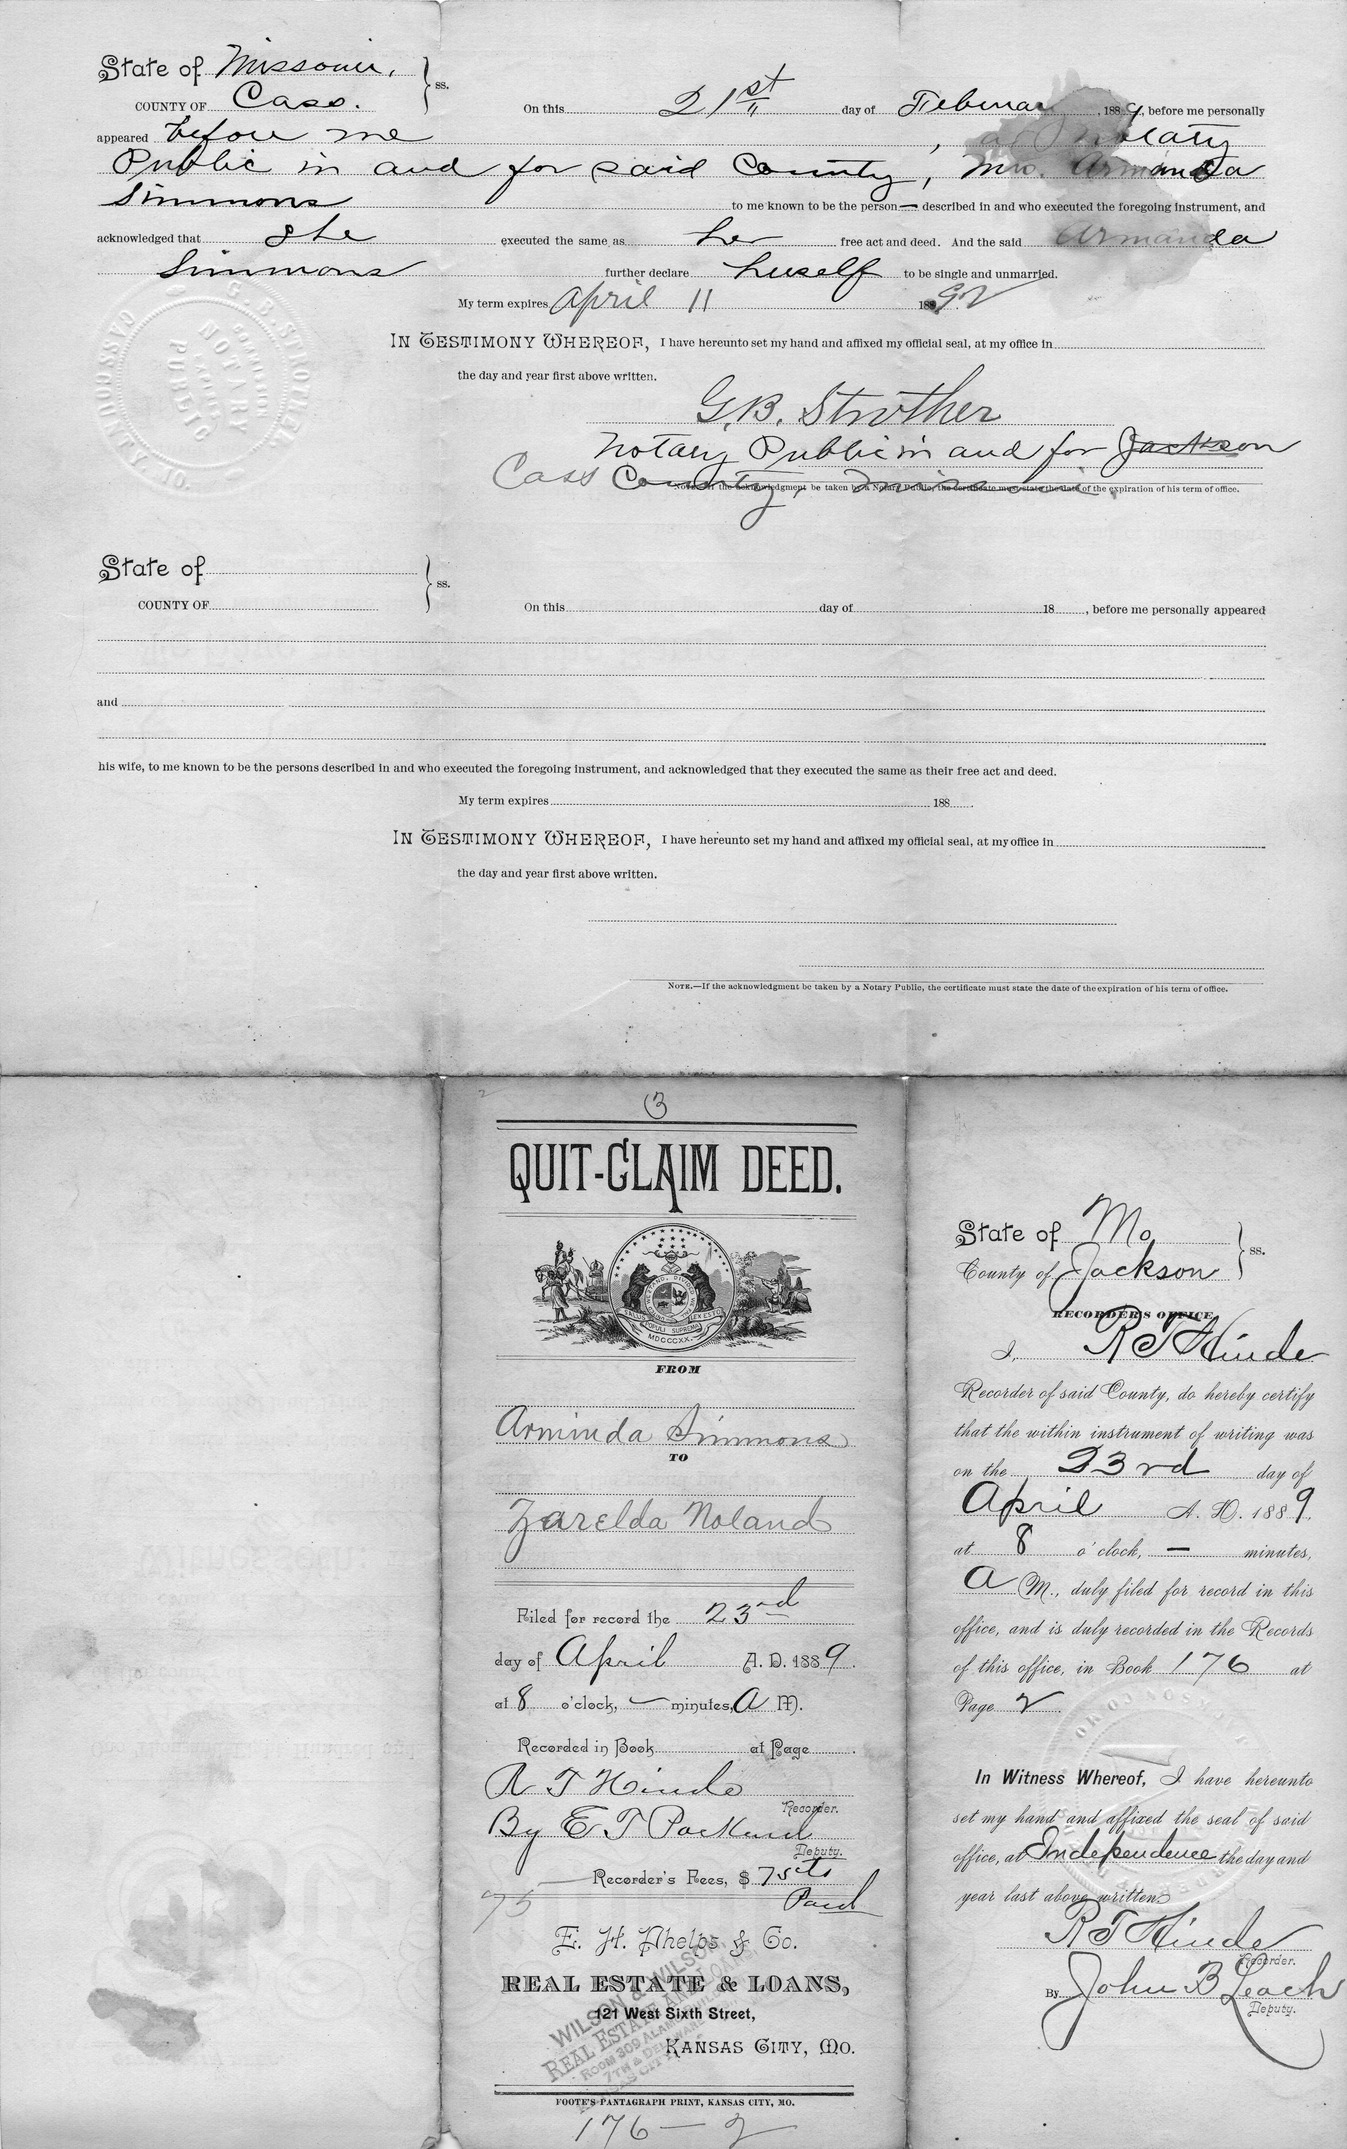 State of Missouri, } ss.
COUNTY OF Cass.
On this 21st day of February, 1889, before me personally
appeared before me, a Notary
Public in and for said County, Mrs. Armanda
Simmons to me known to be the person — described in and who executed the foregoing instrument, and
acknowledged that She executed the same as her free act and deed. And the said Armanda
Simmons further declare herself to be single and unmarried.
My term expires April 11 1892
IN TESTIMONY WHEREOF, I have hereunto set my hand and affixed my official seal, at my office in
the day and year first above written.
G. B. STROTHER
NOTARY PUBLIC
CASS COUNTY, MO.
G. B. Strother
Notary Public in and for Jackson
Cass County, Missouri.
NOTE.—If the acknowledgment be taken by a Notary Public, the certificate must state the date of the expiration of his term of office.
State of } ss.
COUNTY OF
On this day of 18 , before me personally appeared
and
his wife, to me known to be the persons described in and who executed the foregoing instrument, and acknowledged that they executed the same as their free act and deed.
My term expires 188 .
IN TESTIMONY WHEREOF, I have hereunto set my hand and affixed my official seal, at my office in
the day and year first above written.
NOTE.—If the acknowledgment be taken by a Notary Public, the certificate must state the date of the expiration of his term of office.
3
QUIT-CLAIM DEED.
SALUS POPULI SUPREMA LEX ESTO
MDCCCXX.
FROM
Arminda Simmons
TO
Zarelda Noland
Filed for record the 23rd
day of April A. D. 1889.
at 8 o'clock, — minutes, A M.
Recorded in Book at Page .
R T Hinde
Recorder.
By E T Packard
Deputy.
Recorder's Fees, $ 75cts
75 Paid
E. H. Phelps & Co.
REAL ESTATE & LOANS,
121 West Sixth Street,
KANSAS CITY, MO.
WILSON & WILSON,
REAL ESTATE AND LOANS,
ROOM 309 ALAMO BUILDING
7TH & DELAWARE
KANSAS CITY
FOOTE'S PANTAGRAPH PRINT, KANSAS CITY, MO.
176 — 2
State of Mo } ss.
County of Jackson
RECORDER'S OFFICE
I, R T Hinde
Recorder of said County, do hereby certify
that the within instrument of writing was
on the 23rd day of
April A. D. 1889,
at 8 o'clock, — minutes,
A M., duly filed for record in this
office, and is duly recorded in the Records
of this office, in Book 176 at
Page 2.
In Witness Whereof, I have hereunto
set my hand and affixed the seal of said
office, at Independence the day and
year last above written.
R T Hinde
Recorder.
By John B Leach
Deputy.